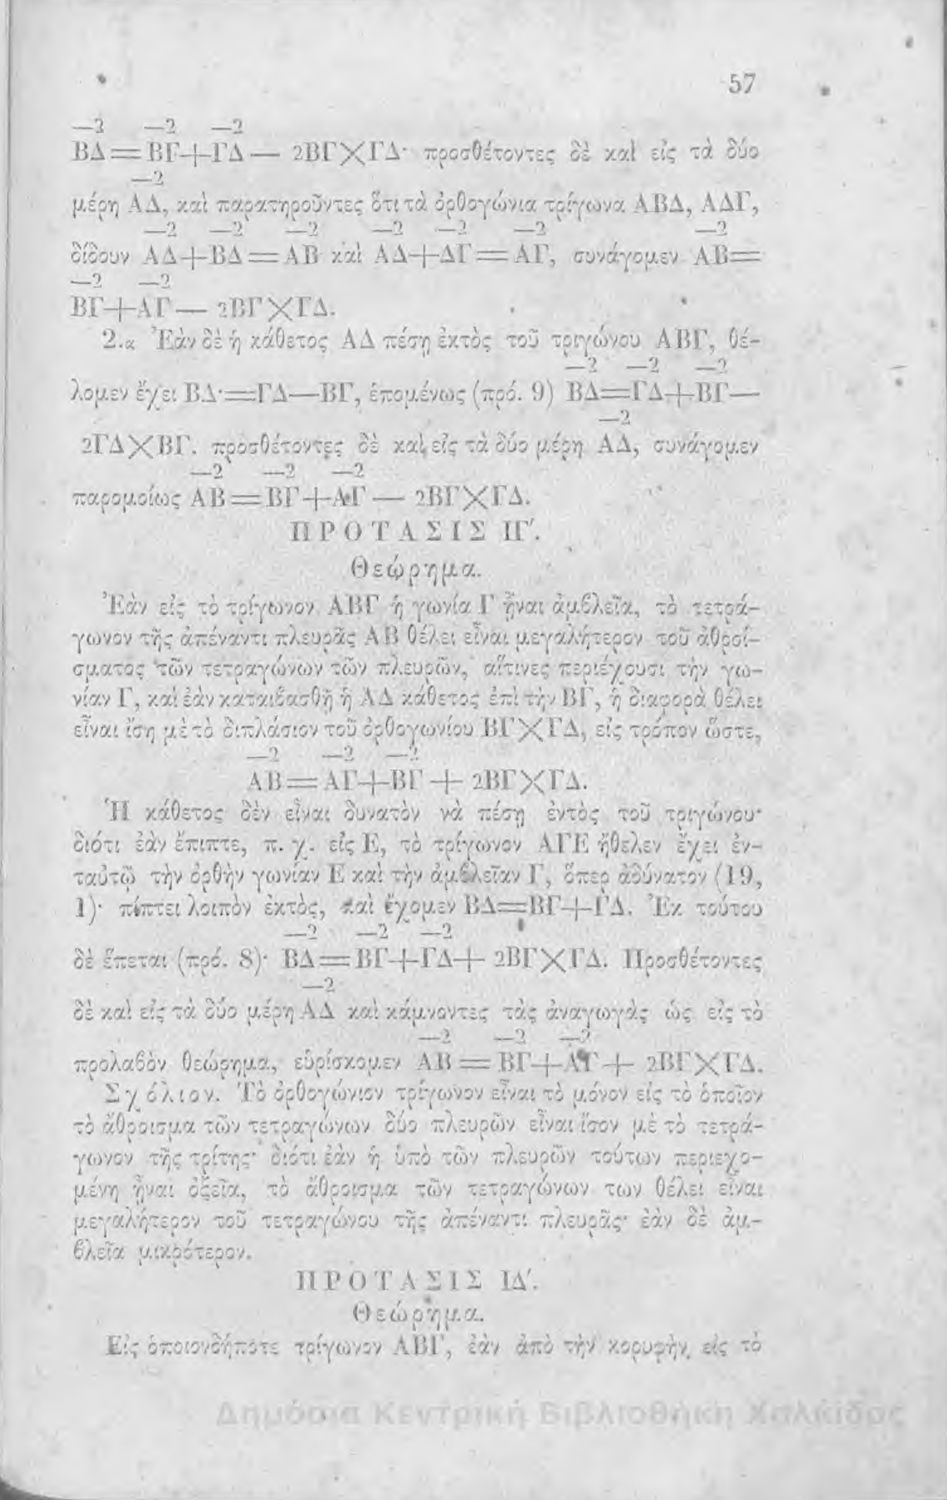 57
—2 —2 —2
ΒΔ=ΒΓ+ΓΔ— 2ΒΓ×ΓΔ· προσθέτοντες δὲ καὶ εἰς τὰ δύο
—2
μέρη ΑΔ, καὶ παρατηροῦντες ὅτι τὰ ὀρθογώνια τρίγωνα ΑΒΔ, ΑΔΓ,
—2 —2 —2 —2 —2 —2 —2
δίδουν ΑΔ+ΒΔ=ΑΒ καὶ ΑΔ+ΔΓ=ΑΓ, συνάγομεν ΑΒ=
—2 —2
ΒΓ+ΑΓ— 2ΒΓ×ΓΔ.
2.α Ἐὰν δὲ ἡ κάθετος ΑΔ πέσῃ ἐκτὸς τοῦ τριγώνου ΑΒΓ, θέ-
—2 —2 —2
λομεν ἔχει ΒΔ=ΓΔ—ΒΓ, ἑπομένως (πρό. 9) ΒΔ=ΓΔ+ΒΓ—
—2
2ΓΔ×ΒΓ. προσθέτοντες δὲ καὶ εἰς τὰ δύο μέρη ΑΔ, συνάγομεν
—2 —2 —2
παρομοίως ΑΒ=ΒΓ+ΑΓ— 2ΒΓ×ΓΔ.
ΠΡΟΤΑΣΙΣ ΙΓ΄.
Θεώρημα.
Ἐὰν εἰς τὸ τρίγωνον ΑΒΓ ἡ γωνία Γ ᾖναι ἀμβλεῖα, τὸ τετρά-
γωνον τῆς ἀπέναντι πλευρᾶς ΑΒ θέλει εἶναι μεγαλήτερον τοῦ ἀθροί-
σματος τῶν τετραγώνων τῶν πλευρῶν, αἵτινες περιέχουσι τὴν γω-
νίαν Γ, καὶ ἐὰν καταιβασθῇ ἡ ΑΔ κάθετος ἐπὶ τὴν ΒΓ, ἡ διαφορὰ θέλει
εἶναι ἴση μὲ τὸ διπλάσιον τοῦ ὀρθογωνίου ΒΓ×ΓΔ, εἰς τρόπον ὥστε,
—2 —2 —2
ΑΒ=ΑΓ+ΒΓ + 2ΒΓ×ΓΔ.
Ἡ κάθετος δὲν εἶναι δυνατὸν νὰ πέσῃ ἐντὸς τοῦ τριγώνου·
διότι ἐὰν ἔπιπτε, π. χ. εἰς Ε, τὸ τρίγωνον ΑΓΕ ἤθελεν ἔχει ἐν-
ταὐτῷ τὴν ὀρθὴν γωνίαν Ε καὶ τὴν ἀμβλεῖαν Γ, ὅπερ ἀδύνατον (19,
1)· πίπτει λοιπὸν ἐκτὸς, καὶ ἔχομεν ΒΔ=ΒΓ+ΓΔ. Ἐκ τούτου
—2 —2 —2
δὲ ἕπεται (πρό. 8)· ΒΔ=ΒΓ+ΓΔ+ 2ΒΓ×ΓΔ. Προσθέτοντες
—2
δὲ καὶ εἰς τὰ δύο μέρη ΑΔ καὶ κάμνοντες τὰς ἀναγωγὰς ὡς εἰς τὸ
—2 —2 —2
προλαβὸν θεώρημα, εὑρίσκομεν ΑΒ=ΒΓ+ΑΓ+ 2ΒΓ×ΓΔ.
Σχόλιον. Τὸ ὀρθογώνιον τρίγωνον εἶναι τὸ μόνον εἰς τὸ ὁποῖον
τὸ ἄθροισμα τῶν τετραγώνων δύο πλευρῶν εἶναι ἴσον μὲ τὸ τετρά-
γωνον τῆς τρίτης· διότι ἐὰν ἡ ὑπὸ τῶν πλευρῶν τούτων περιεχο-
μένη ᾖναι ὀξεῖα, τὸ ἄθροισμα τῶν τετραγώνων των θέλει εἶναι
μεγαλήτερον τοῦ τετραγώνου τῆς ἀπέναντι πλευρᾶς· ἐὰν δὲ ἀμ-
βλεῖα μικρότερον.
ΠΡΟΤΑΣΙΣ ΙΔ΄.
Θεώρημα.
Εἰς ὁποιονδήποτε τρίγωνον ΑΒΓ, ἐὰν ἀπὸ τὴν κορυφὴν εἰς τὸ
Δημόσια Κεντρική Βιβλιοθήκη Χαλκίδος